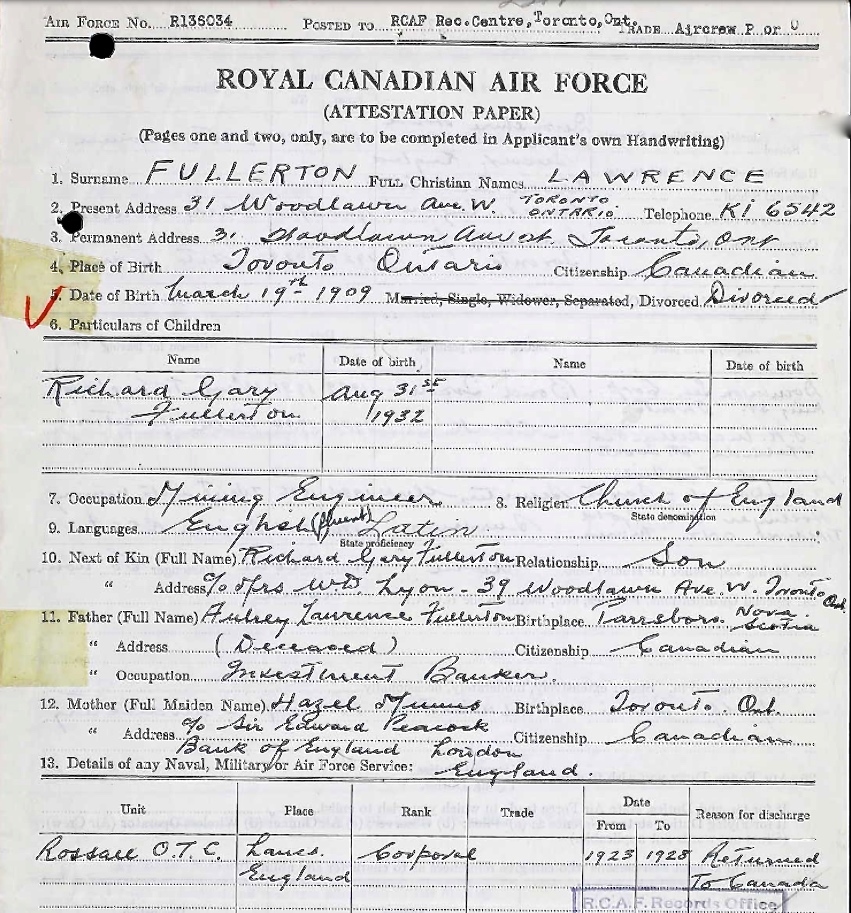 AIR FORCE No. R135034 POSTED TO RCAF Rec.Centre,Toronto,Ont. TRADE Aircrew P or O
ROYAL CANADIAN AIR FORCE
(ATTESTATION PAPER)
(Pages one and two, only, are to be completed in Applicant's own Handwriting)
1. Surname FULLERTON FULL Christian Names LAWRENCE
2. Present Address 31 Woodlawn Ave. W. TORONTO ONTARIO. Telephone KI 6542
3. Permanent Address 31 Woodlawn Ave W. Toronto, Ont
4. Place of Birth Toronto Ontario Citizenship Canadian
5. Date of Birth March 19th 1909 Married, Single, Widower, Separated, Divorced Divorced
6. Particulars of Children
Name Date of birth Name Date of birth
Richard Gary Aug 31st
Fullerton 1932
7. Occupation Mining Engineer 8. Religion Church of England
State denomination
9. Languages English (fluent) Latin
State proficiency
10. Next of Kin (Full Name) Richard Gary Fullerton Relationship Son
" Address c/o Mrs W.D. Lyon - 39 Woodlawn Ave. W. Toronto Ont.
11. Father (Full Name) Aubrey Lawrence Fullerton Birthplace Parrsboro. Nova Scotia
" Address (Deceased) Citizenship Canadian
" Occupation Investment Banker.
12. Mother (Full Maiden Name) Hazel Birthplace Toronto. Ont.
" Address c/o Sir Edward Peacock Citizenship Canadian
Bank of England London
13. Details of any Naval, Military or Air Force Service: England.
Unit Place Rank Trade Date From To Reason for discharge
Rossall O.T.C. Lancs. Corporal 1923 1928 Returned
England To Canada
R.C.A.F. Records Office